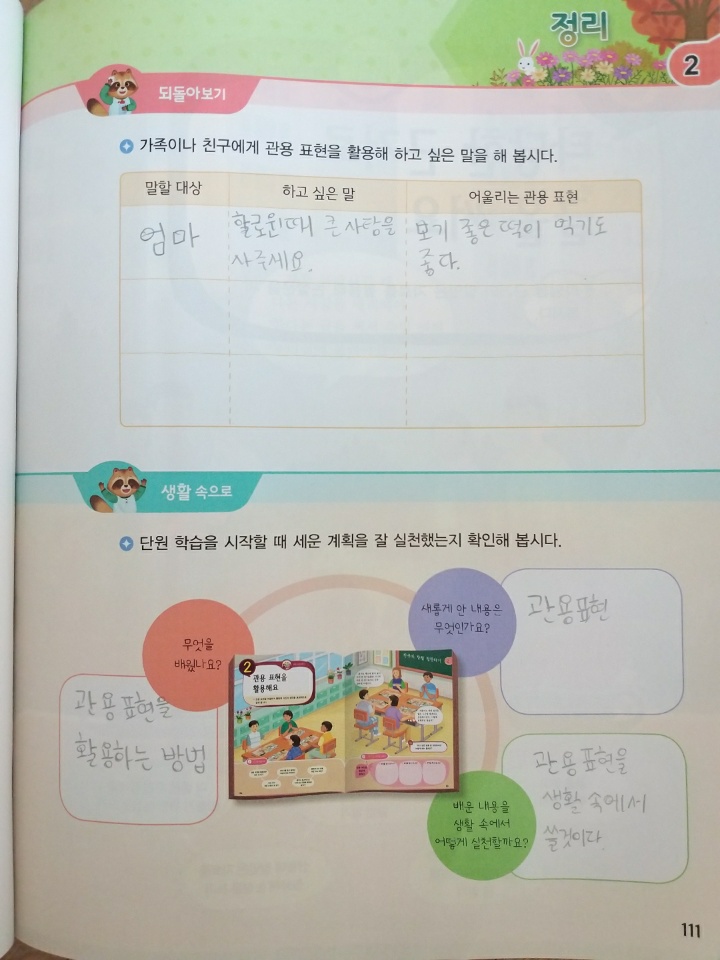 정리
2
되돌아보기
가족이나 친구에게 관용 표현을 활용해 하고 싶은 말을 해 봅시다.
말할 대상
하고 싶은 말
어울리는 관용 표현
엄마
할로윈때 큰 사탕을
사주세요.
보기 좋은 떡이 먹기도
좋다.
생활 속으로
단원 학습을 시작할 때 세운 계획을 잘 실천했는지 확인해 봅시다.
무엇을
배웠나요?
관용 표현을
활용하는 방법
새롭게 안 내용은
무엇인가요?
관용표현
2
관용 표현을
활용해요
배운 내용을
생활 속에서
어떻게 실천할까요?
관용 표현을
생활 속에서
쓸것이다.
111